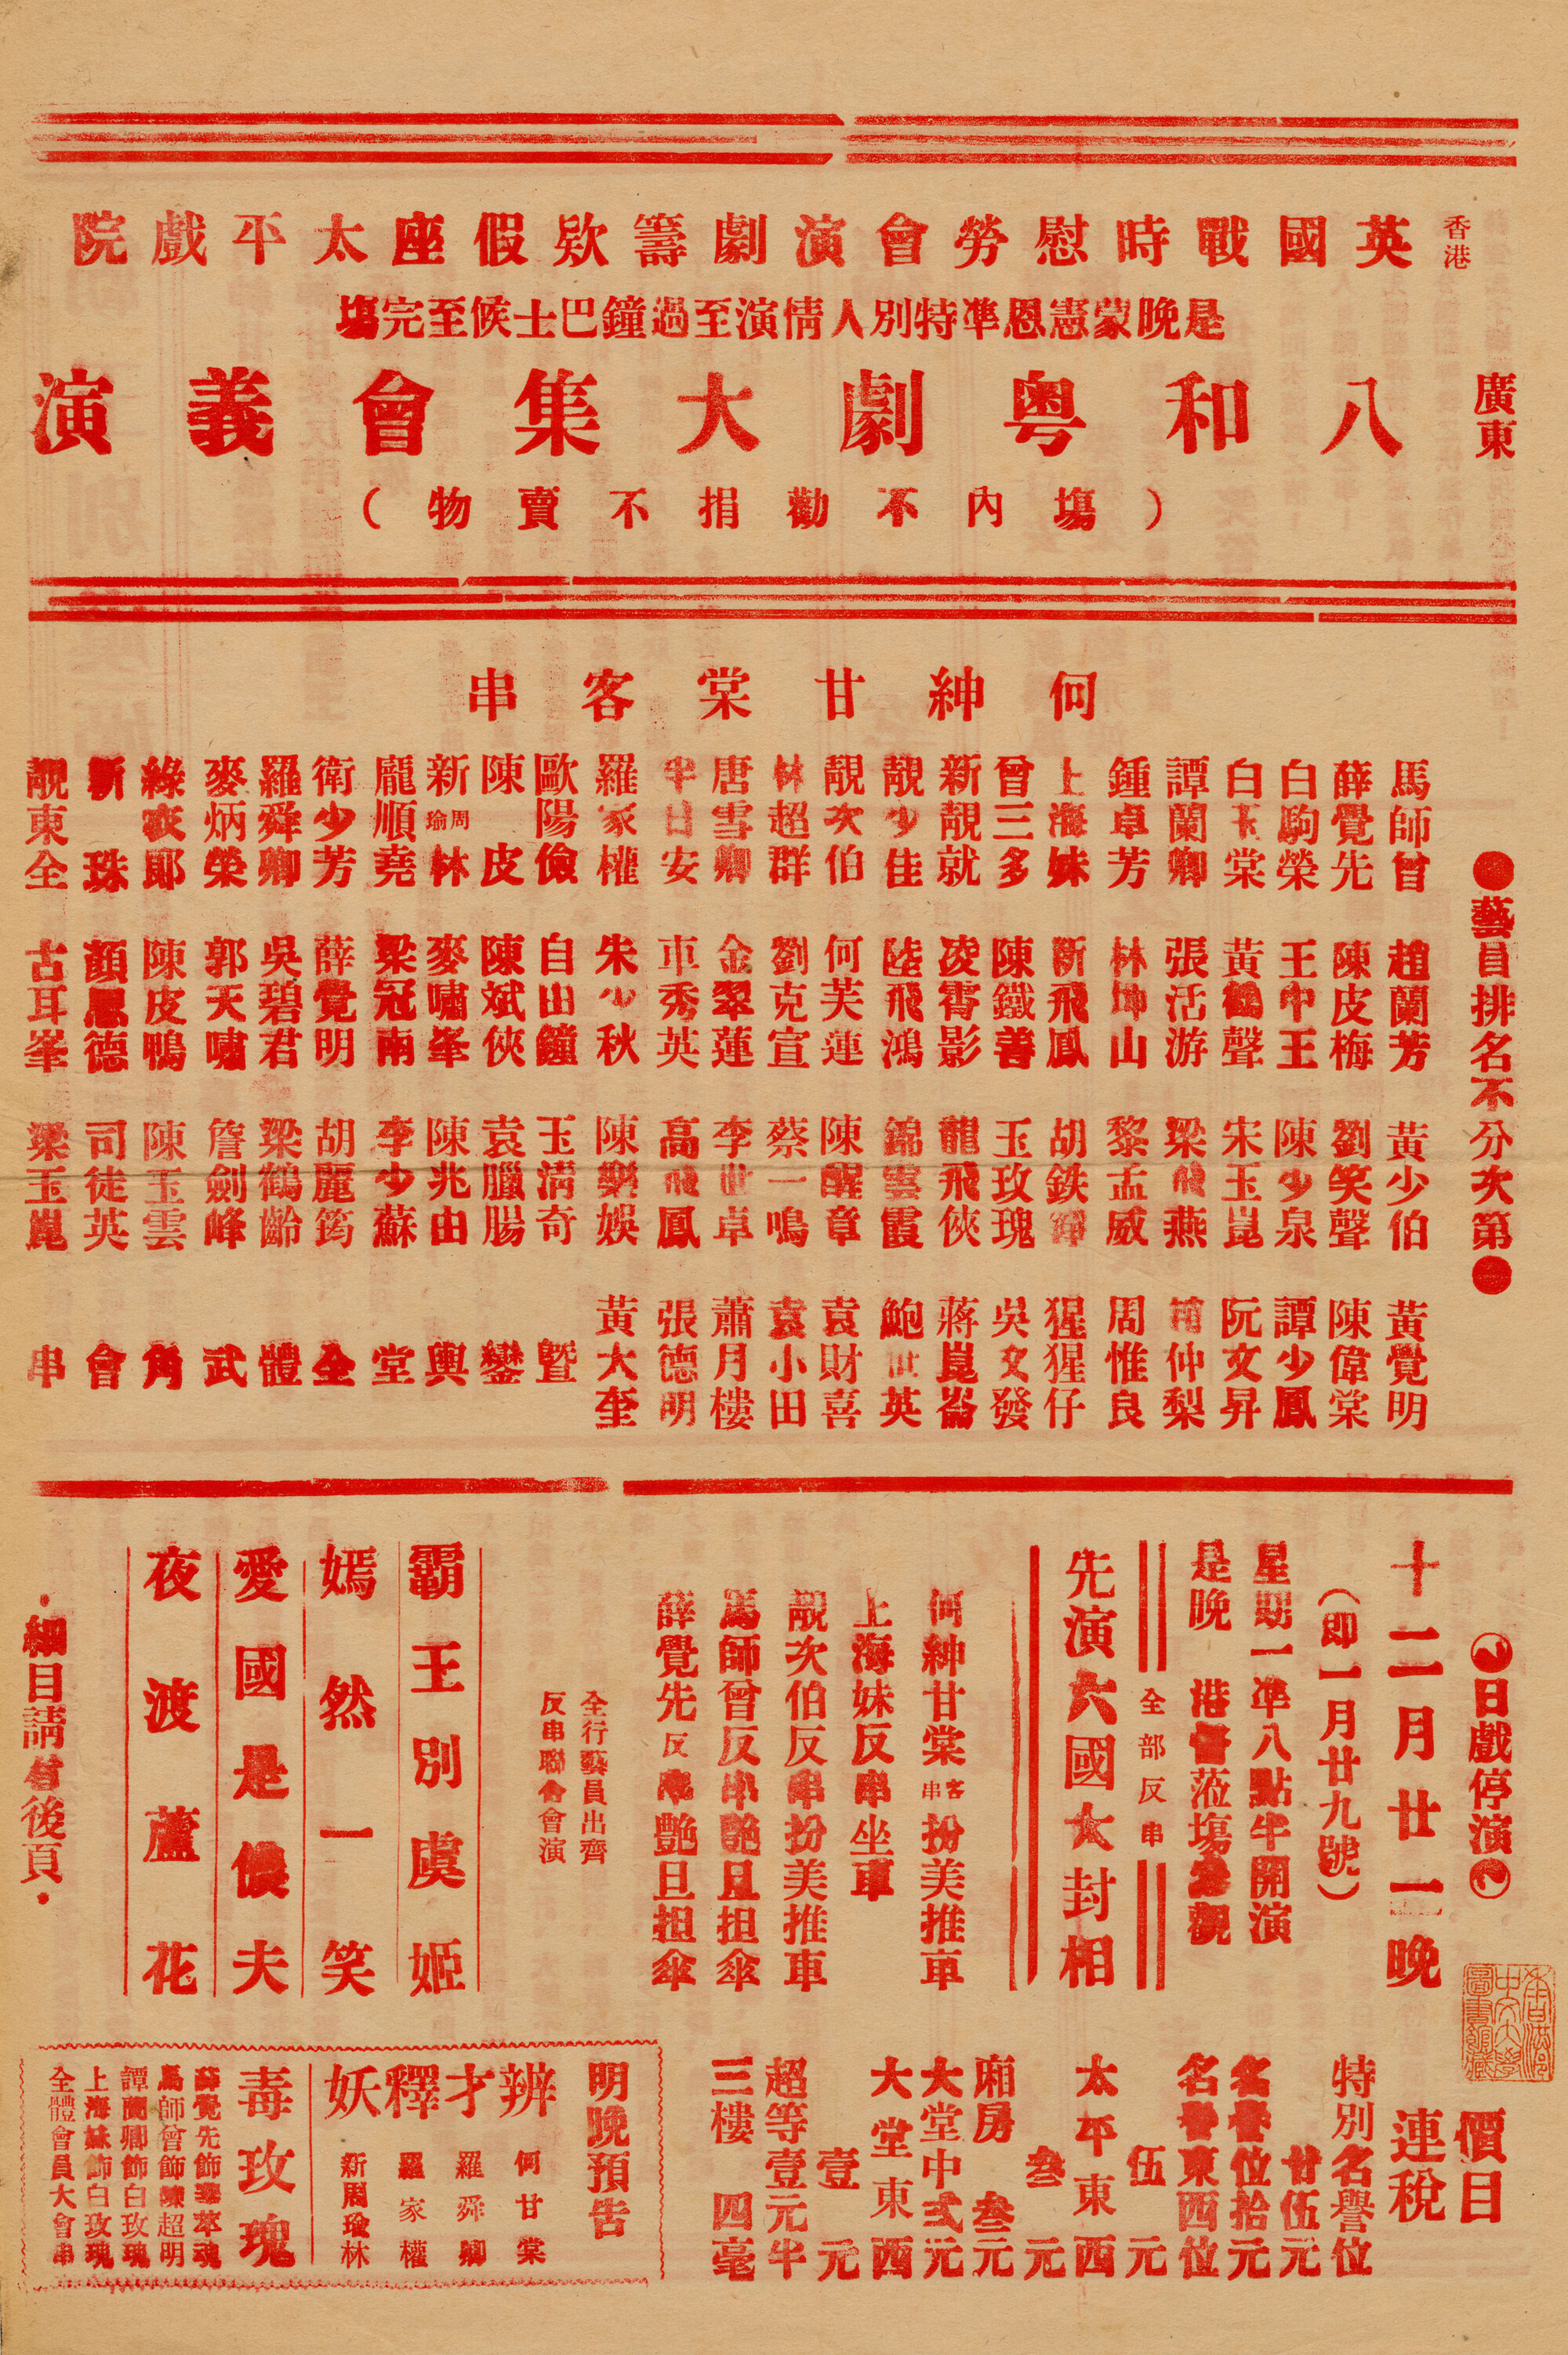 香港
英國戰時慰勞會演劇籌欵假座太平戲院
是晚蒙憲恩準特別人情演至過鐘巴士候至完塲
廣東
八和粤劇大集會義演
（塲內不勸捐不賣物）
何紳甘棠客串
●藝員排名不分次第●
馬師曾 趙蘭芳 黃少伯 黃覺明
薛覺先 陳皮梅 劉笑聲 陳偉棠
白駒榮 王中王 陳少泉 譚少鳳
白玉棠 黃鶴聲 宋玉崑 阮文昇
譚蘭卿 張活游 梁飛燕 仲梨
鍾卓芳 林坤山 黎孟威 周惟良
上海妹 新飛鳳 胡鉄 猩猩仔
曾三多 陳鐵善 玉玫瑰 吳文發
新靚就 凌霄影 龍飛俠 蔣崑崙
靚少佳 陸飛鴻 錦雲霞 鮑世英
靚次伯 何芙蓮 陳醒章 袁財喜
林超群 劉克宣 蔡一鳴 袁小田
唐雪卿 金翠蓮 李世卓 蕭月樓
半日安 車秀英 高飛鳳 張德明
羅家權 朱少秋 陳樂娛 黃大奎
歐陽儉 自由鐘 玉淸奇 暨
陳皮 陳斌俠 袁臘腸 鑾
新周瑜林 麥嘯峯 陳兆由 輿
龐順堯 梁冠南 李少蘇 堂
衛少芳 薛覺明 胡麗筠 全
羅舜卿 吳碧君 梁鶴齡 體
麥炳榮 郭天嘯 詹劍峰 武
綠衣郎 陳皮鴨 陳玉雲 角
新珠 顏思德 司徒英 會
靚東全 古耳峯 梁玉崑 串
日戲停演
十二月廿一晚
（即一月廿九號）
星期一準八點半開演
是晚 港督蒞塲參觀
全部反串
先演六國大封相
何紳甘棠客串扮美推車
上海妹反串坐車
靚次伯反串扮美推車
馬師曾反串艷旦担傘
薛覺先反串艷旦担傘
全行藝員出齊
反串聯合會演
霸王別虞姬
嫣然一笑
愛國是儂夫
夜渡蘆花
·細目請看後頁·
價目
連稅
特別名譽位
廿伍元
名譽位拾元
名譽東西位
伍元
太平東西
叁元
廂房 叁元
大堂中弍元
大堂東西
壹元
超等壹元半
三樓 四毫
明晚預告
辨才釋妖
何甘棠
羅舜卿
羅家權
新周瑜林
毒玫瑰
薛覺先飾
馬師曾飾陳超明
譚蘭卿飾白玫瑰
上海妹飾白玫瑰
全體會員大會串
香港中文大學圖書館藏